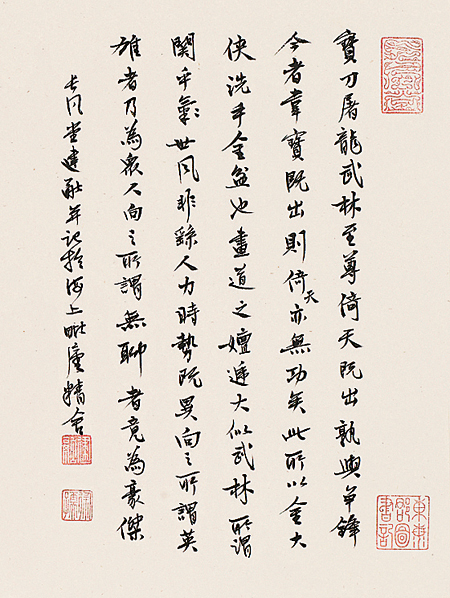 寶刀屠龍武林至尊倚天既出孰與爭鋒
今者韋寶既出則倚天亦無功矣此所以金大
俠洗手金盆也畫道之嬗遞大似武林所謂
關乎氣世風非繇人力時勢既異向之所謂英
雄者乃為眾人向之所謂無聊者竟為豪傑
長風堂建融記於海上毗廬精舍